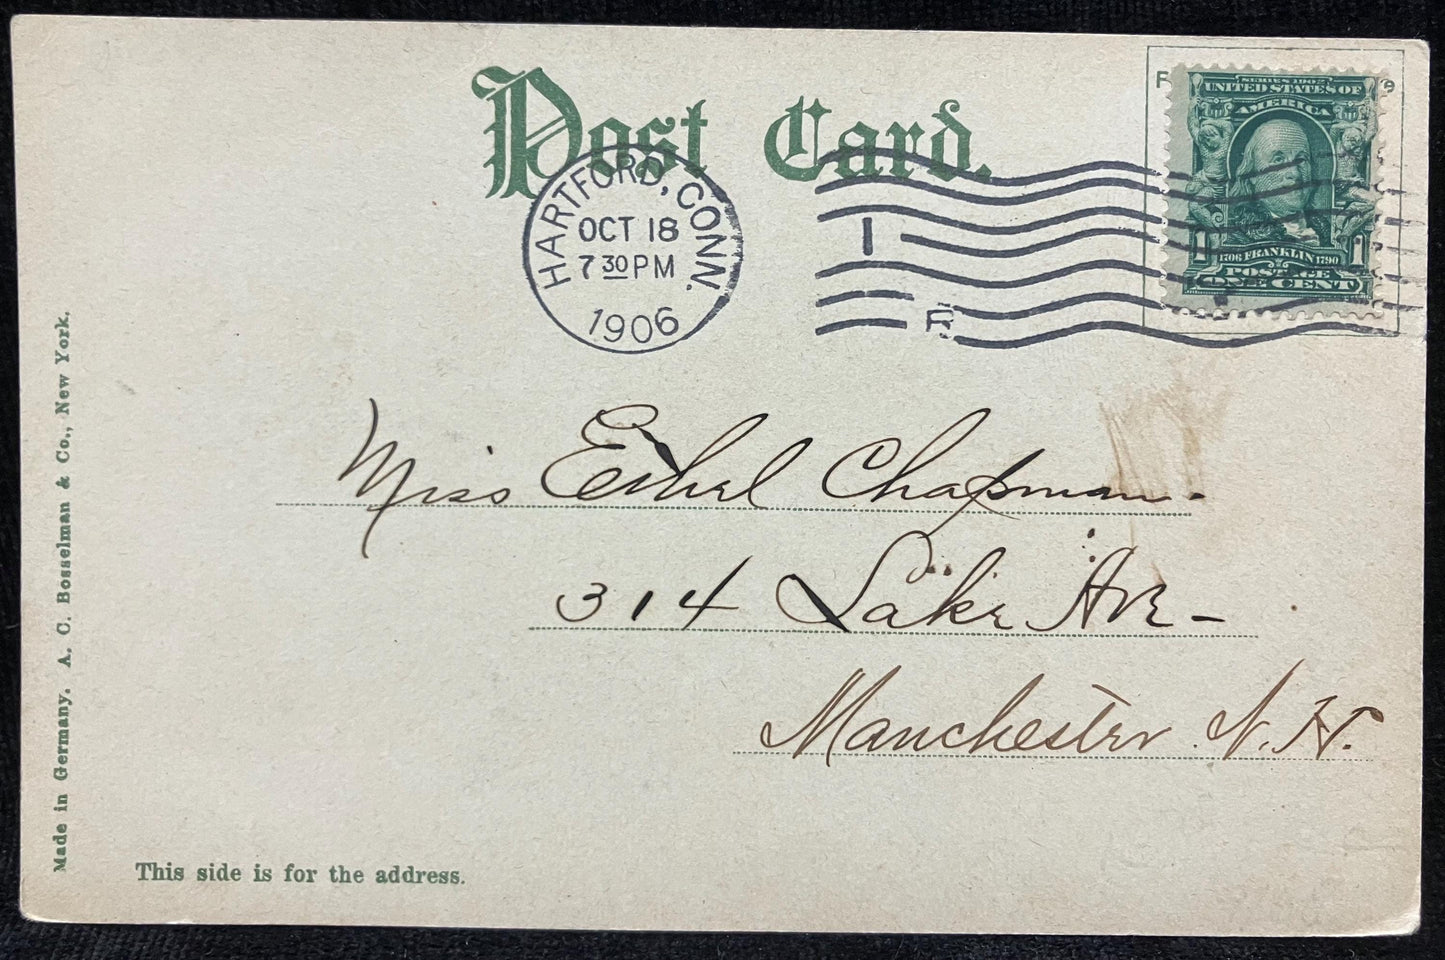 Post Card.
HARTFORD, CONN.
OCT 18
7 30 PM
1906
1
R
SERIES 1902
UNITED STATES OF
AMERICA
1706 FRANKLIN 1790
1 POSTAGE 1
ONE CENT
Miss Ethel Chapman.
314 Lake Ave-
Manchester N.H.
This side is for the address.
Made in Germany. A. C. Bosselman & Co., New York.